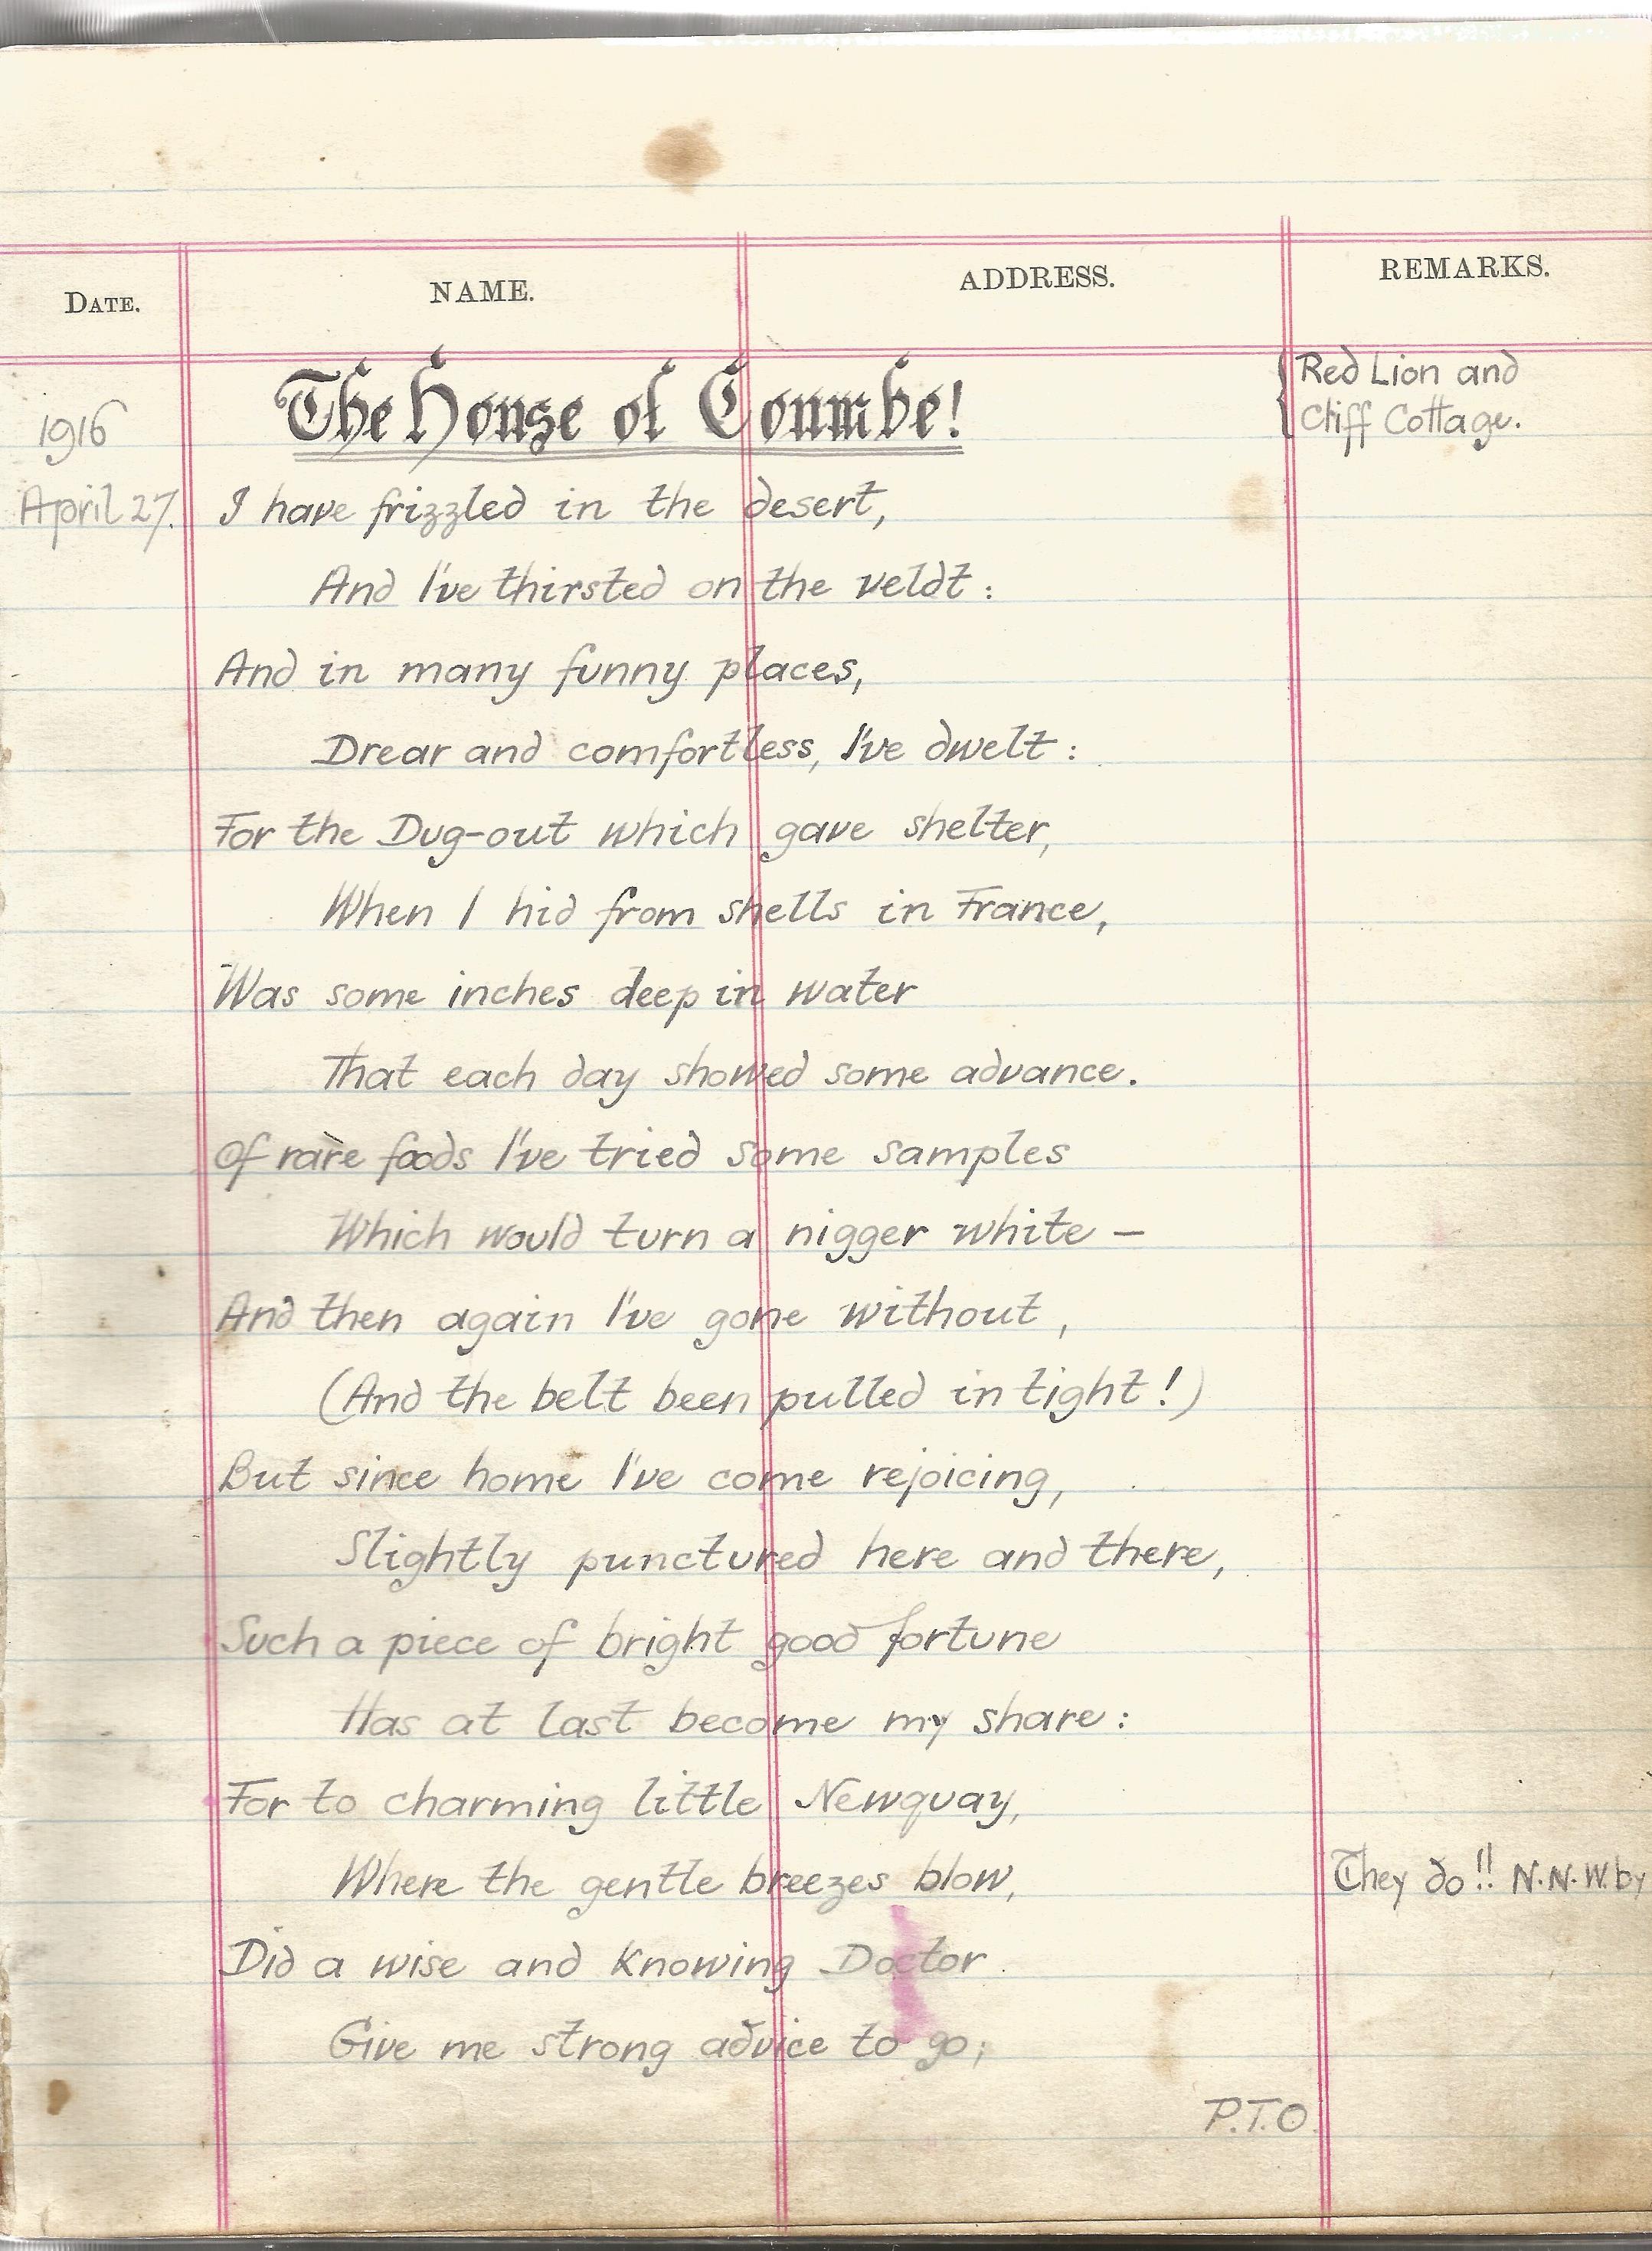 DATE. NAME. ADDRESS. REMARKS.
The House of Coumbe!
Red Lion and
Cliff Cottage.
1916
April 27.
I have frizzled in the desert,
And I've thirsted on the veldt:
And in many funny places,
Drear and comfortless, I've dwelt:
For the Dug-out which gave shelter,
When I hid from shells in France,
Was some inches deep in water
That each day showed some advance.
Of rare foods I've tried some samples
Which would turn a nigger white —
And then again I've gone without,
(And the belt been pulled in tight!)
But since home I've come rejoicing,
Slightly punctured here and there,
Such a piece of bright good fortune
Has at last become my share:
For to charming little Newquay,
Where the gentle breezes blow,
They do!! N.N.W. by
Did a wise and knowing Doctor
Give me strong advice to go;
P.T.O.